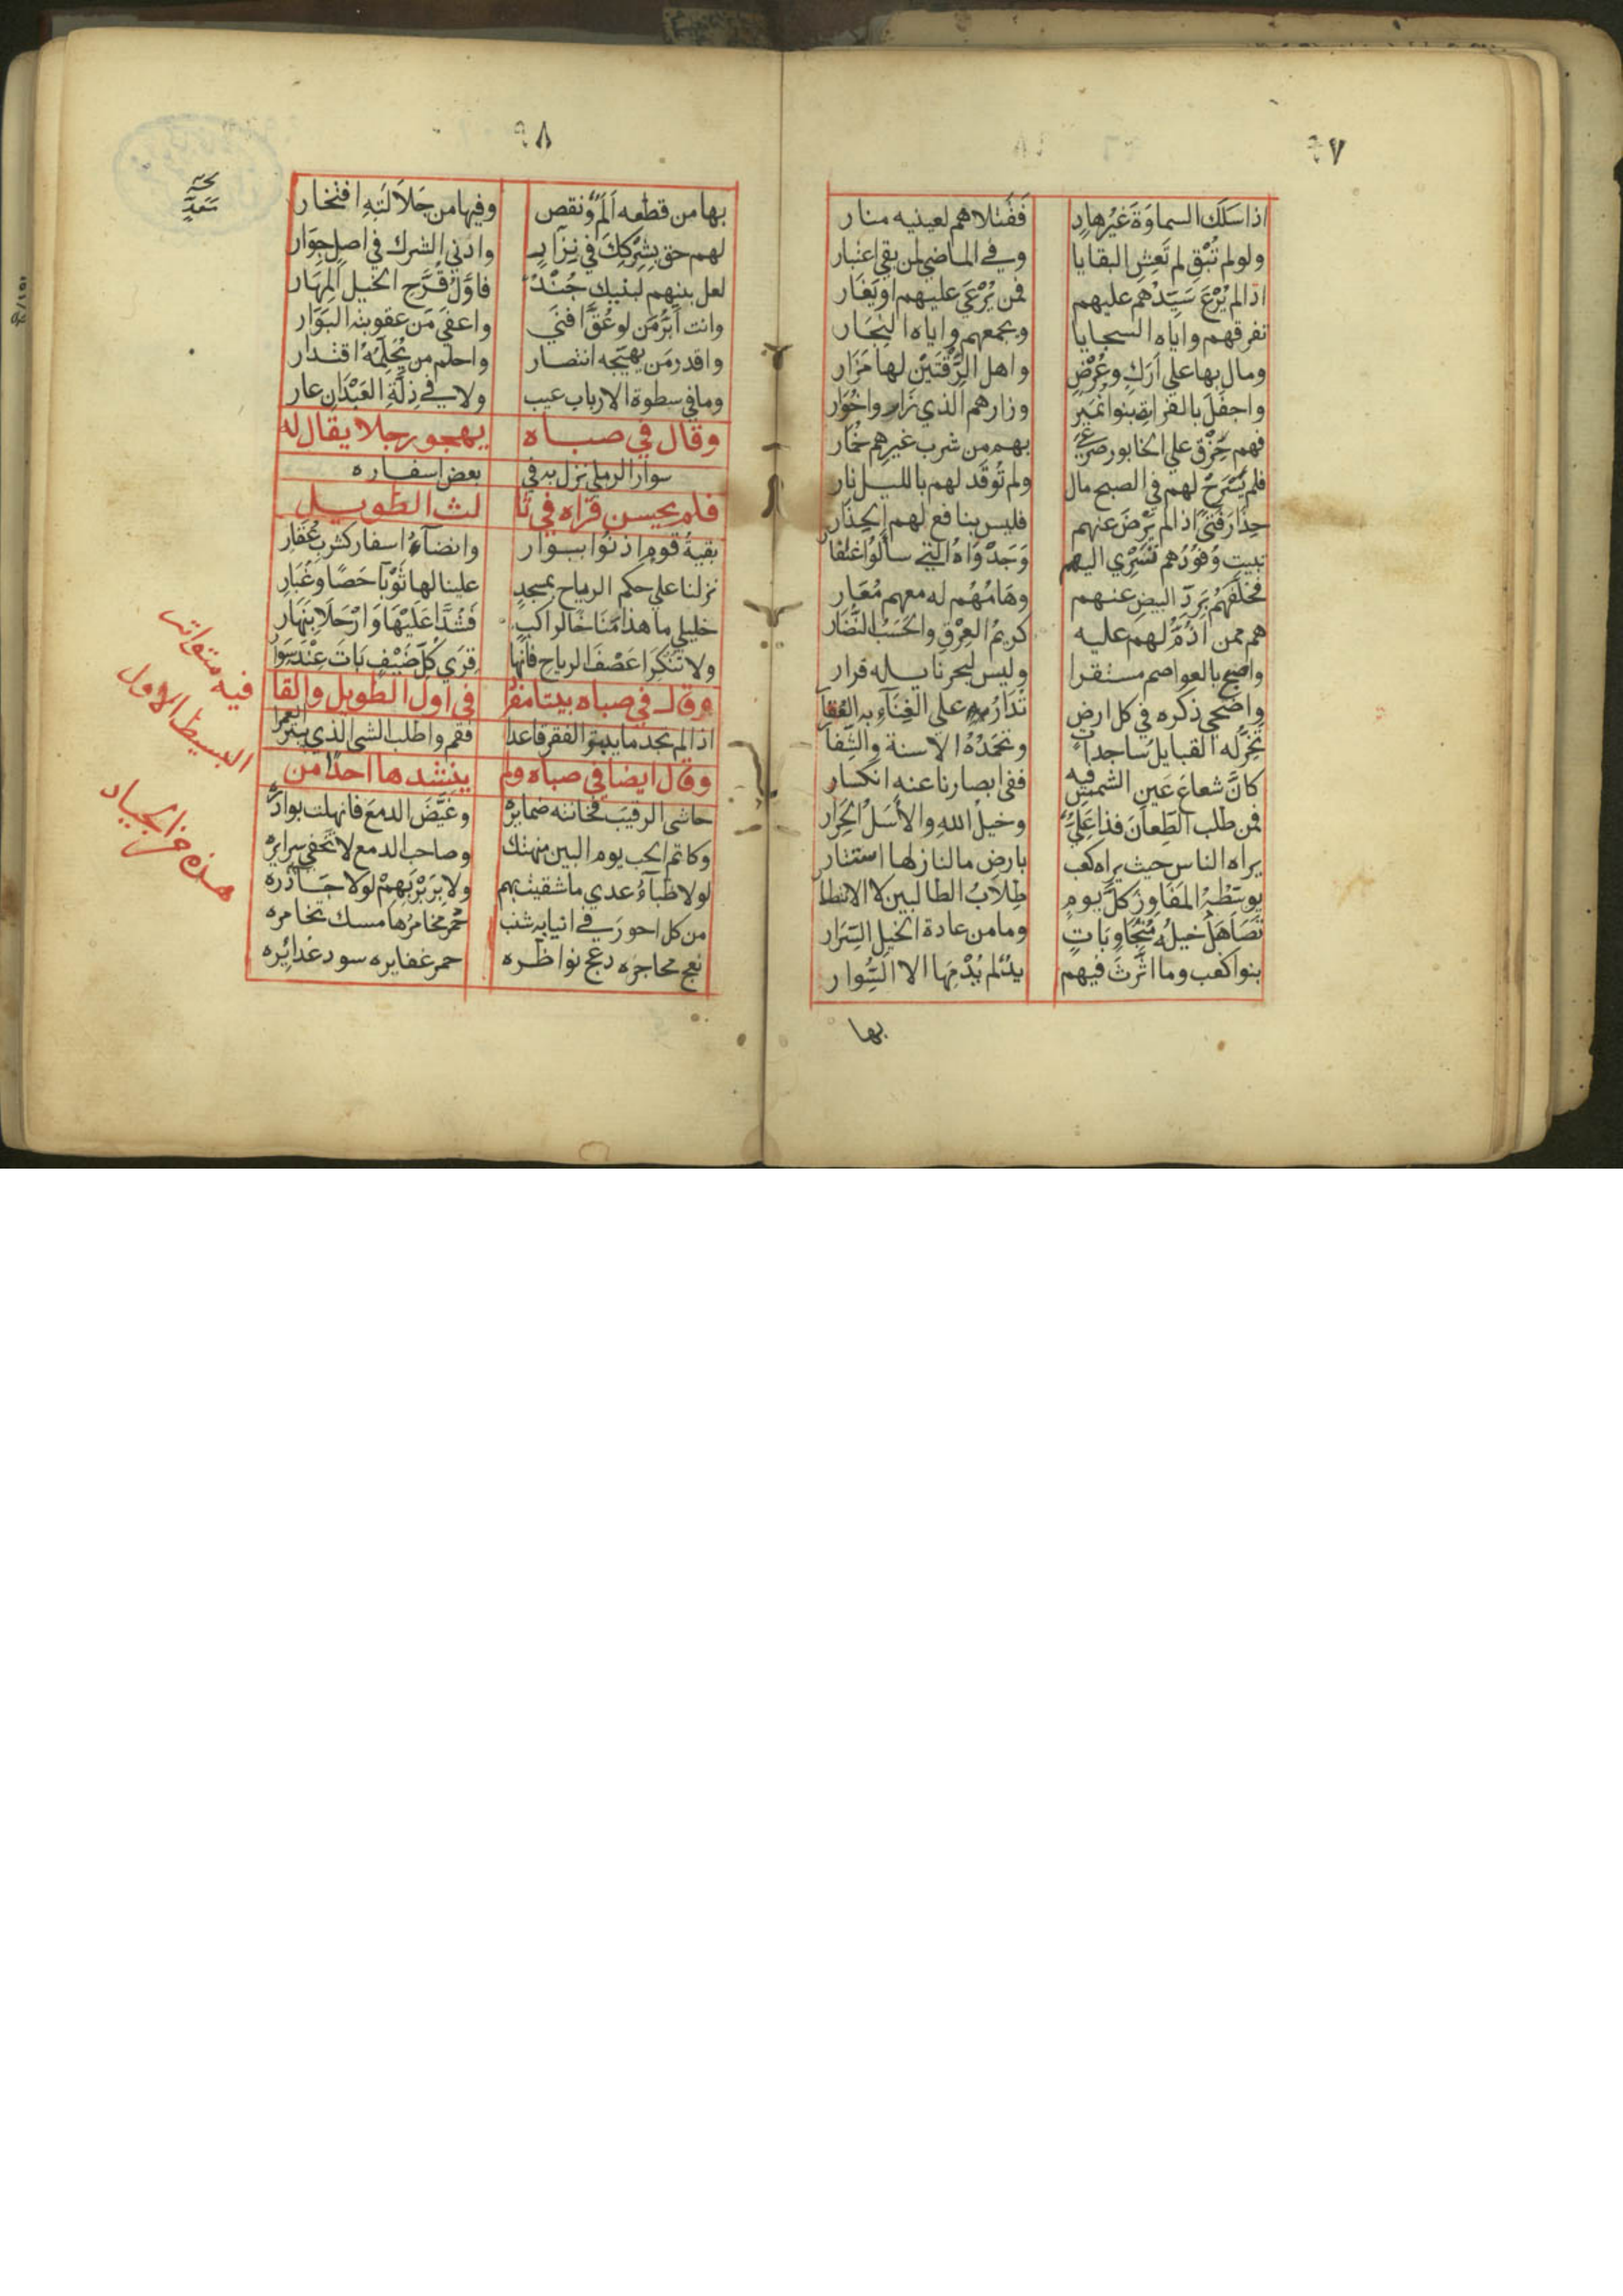 ٩٧
اذا سَلَك السماوَةَ غَيْرُ هادٍ فَقَتلاهم لعينيه منار
ولو لم تُبْقِ لم تَعِشِ البقايا وفي الماضي لمن بقي اعتبار
اذا لم يُرْعَ سَيِّدُهم عليهم فمن يُرْعَي عليهم او يَغَار
تفرقهم واياه السجايا ويجمعهم واياه النِّجَار
ومال بها علي أَرَكٍ وعُرْضٍ واهل الرَّقَّتَيْنِ لها مَزَار
واجفَلَ بالفرات بنوا نُمَيْرٍ وزارهم الذي زَار واخُوَار
فهم حِزَق علي الخابور صَرْعَي بهم من شرب غيرهم خُمَار
فلم يَسْرَحْ لهم في الصبح مال ولم تُوقَد لهم بالليل نار
حِذَارَ فَتىً اذا لم يَرْضَ عنهم فليس بنافع لهم الحِذَار
تبيت وُفُودُهم تَسْرِي اليهم وَجَدْوَاهُ التي سألوا اغتفا
فخلفهُم بِرَدّ البيض عنهم وهَامُهُم له معهم مُعَار
هم ممن اذَمَّ لهم عليه كريمُ العِرْقِ والحَسَبُ النُّضَار
واصبح بالعواصم مستقرا وليس لبحر نايله قرار
واضحي ذكره في كل ارض تُدَارُ علي الغِنَاءِ به العُقا
تَخِرُّ له القبايل ساجداتٍ وتحمَدُهُ الاسنة والشِّفا
كانَّ شعاعَ عَينِ الشمس فيه ففي ابصارنا عنه انكسار
فمن طلب الطِّعانَ فذا عَلِيٌّ وخيلُ اللهِ والأَسَلُ الحِرَار
يراه الناس حيث يراه كعب بارض ما لنازلها استتار
يوسّطْهُ المَفَاوِزَ كلَّ يوم طِلَابُ الطالبين لا الانتظا
تصَاهَلُ خيلُه مُتَجَاوِبَاتٍ وما من عادة الخيل السِّرَار
بنوا كعب وما اثَّرْتَ فيهم يدٌ لم يُدْمِهَا الا السِّوار
بها
٩٨
بها من قطعه اَلَمٌ ونقص وفيها من جَلَالَتِهِ افتخار
لهم حق بِشِرْكِكَ في نِزَارٍ وادني الشرك في اصل جِوَار
لعل بنيهم لبنيك جُنْدٌ فاوَّلُ قُرَّحِ الخيل المِهَار
وانت اَبَرُّ مَن لو عُقَّ افنَي واعفَي مَن عقوبته البَوَار
واقدر مَن يهيّجه انتصار واحلم من يُحَلِّمُهُ اقتدار
وما في سطوة الارباب عيب ولا في ذِلَّةِ العَبْدَانِ عار
وقال في صباه يهجو رجلا يقال له
سوار الرملي نزل به في بعض اسفاره
فلم يحسن قراه في ثا لث الطويل
بقيةُ قومٍ اذنوا ببوار وانضآءُ اسفار كشرب عُقَار
نزلنا علي حكم الرياح بمسجدٍ علينا لها ثَوْبَا حَصًا وغُبَار
خليلي ما هذا مُنَاخًا لراكبٍ فَشُدَّا عَلَيْهَا وَارْحَلَا بِنَهَار
ولا تُنْكِرَا عَصْفَ الرياحِ فانها قِرَي كُلّ ضَيْفٍ بَاتَ عِنْدَ سَوَا
وقال في صباه بيتا مفرد في اول الطويل والقا
اذا لم تجد ما يبتر الفقر قاعدا فقم واطلب الشي الذي يبتر العمرا
وقال ايضا في صباه ولم ينشدها احدًا من
حاشي الرقيبَ فخانته ضمايرُه وغَيَّضَ الدمعَ فانهلت بوادرُه
وكاتم الحب يوم البين منهتك وصاحب الدمع لا تخفي سرايره
لولا ظبآءُ عدي ما شقيت بهم ولا بِرَبْرَبِهِمْ لولا جَآذره
من كل احورَ في انيابه شنب خمر مخامرُها مسك تخامره
نعج محاجره دعج نواظره حمر غفايره سود غدائره
فيه متواتر
البسيط الاول
هذه غزا لجياد